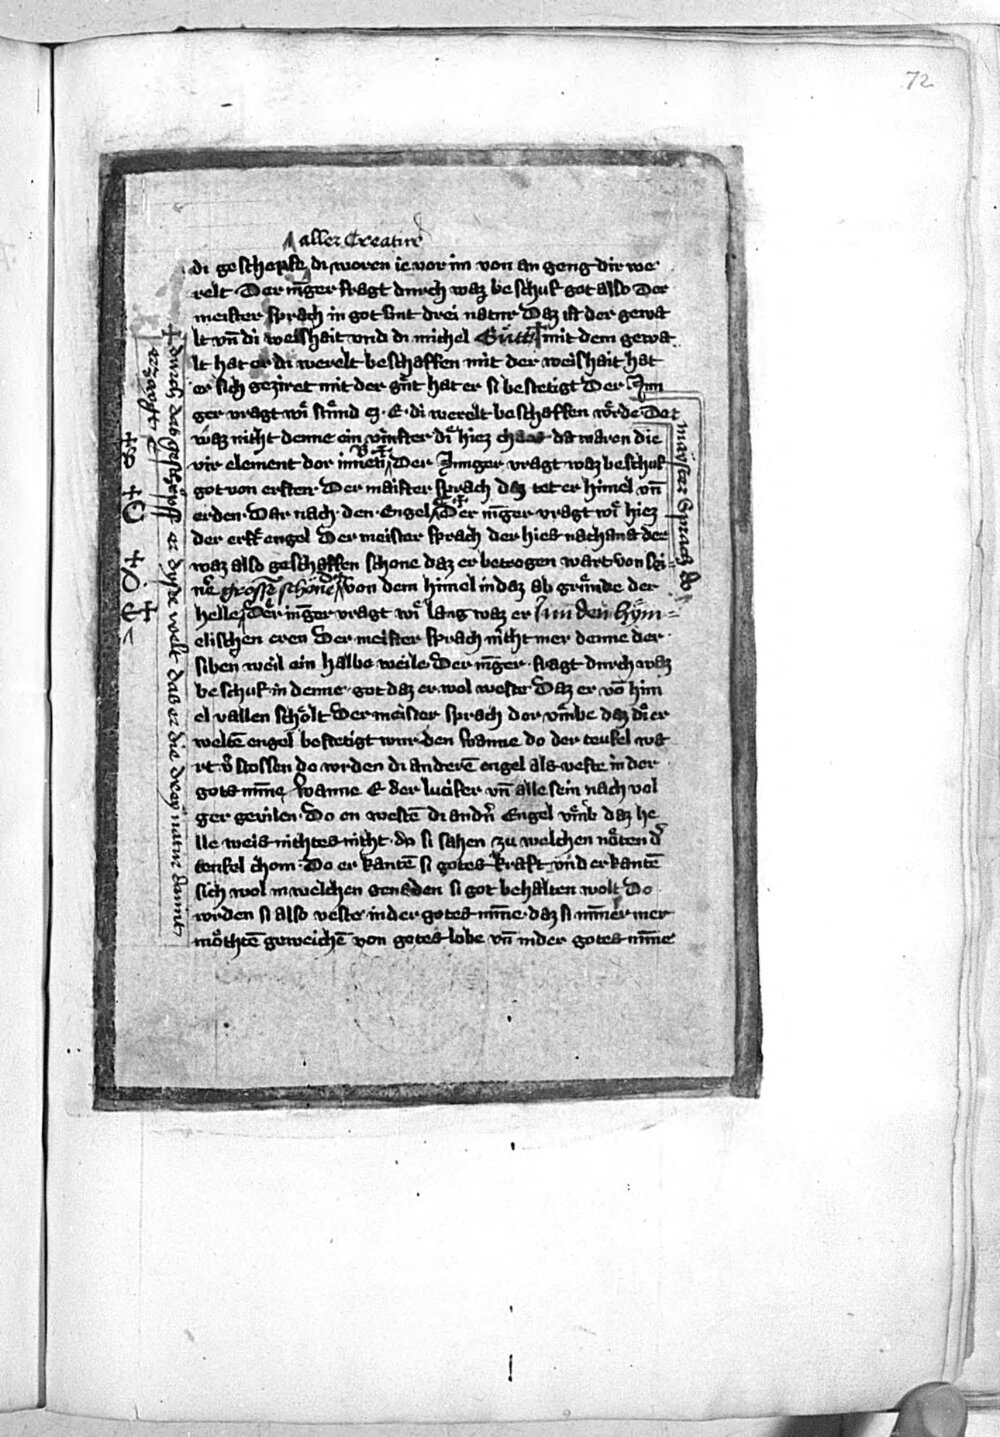 72
aller Creatur
di geschepfe di woren ie vor im von an geng dir we
relt · Der iūger fragt durch waz be schuf got also Der
meister sprach in got sint drei natur Daz ist der gewa
lt vn̄ di weishait vnd di michel Gütt mit dem gewa
lt hat er di werelt beschaffen mit der weishait hat
er sich geziret mit der güt hat er si bestetigt Der Jun
ger vragt wi stund E di werelt beschaffen würde Da
waz nicht denne ein vinster di hiez chaos da waren die
vir element dor inne Der Junger vragt waz beschuf
got von ersten · Der maister sprach daz tet er himel vn̄
erden · Dar nach · den · Engel Der iūger vragt wi hiez
der erst engel Der meister sprach der hies nachand der
waz also geschaffen schone daz er betrogen wart von sei
ner grosse schöne von dem himel in daz ab gründe der
helle Der iūger vragt wi lang waz er in den hÿm=
elischen eren Der meister sprach nicht mer denne der ·
siben weil ein halbe weile Der iūger · fragt durch waz
be schuf in denne · got daz er wol weste Daz er vō him
el vallen schölt Der meister sprach dor vmbe daz di er
weltē engel bestetigt wurden wanne do der teufel wa
rt v̄stossen do wrden di anderē engel als veste in der
gots mīne wanne E der lucifer vn̄ alle sein nach vol
ger gevilen · Do en westē di andn̄ Engel vmb daz he
lle weis nichtes nicht · do si sahen zu welchen nöten d̄
teufel chom · Do er kantē si gotes kraft vnd erkantē
sich wol in welchen genaden si got behalten wolt Do
wrden si also veste in der gotes mīne · daz si nimer mer
möchtē geweichē von gotes lobe vn̄ in der gotes mīne
maÿster Sprach do
durch das geschepff er dyse welt das er die dreÿ natur damit
erzaigt